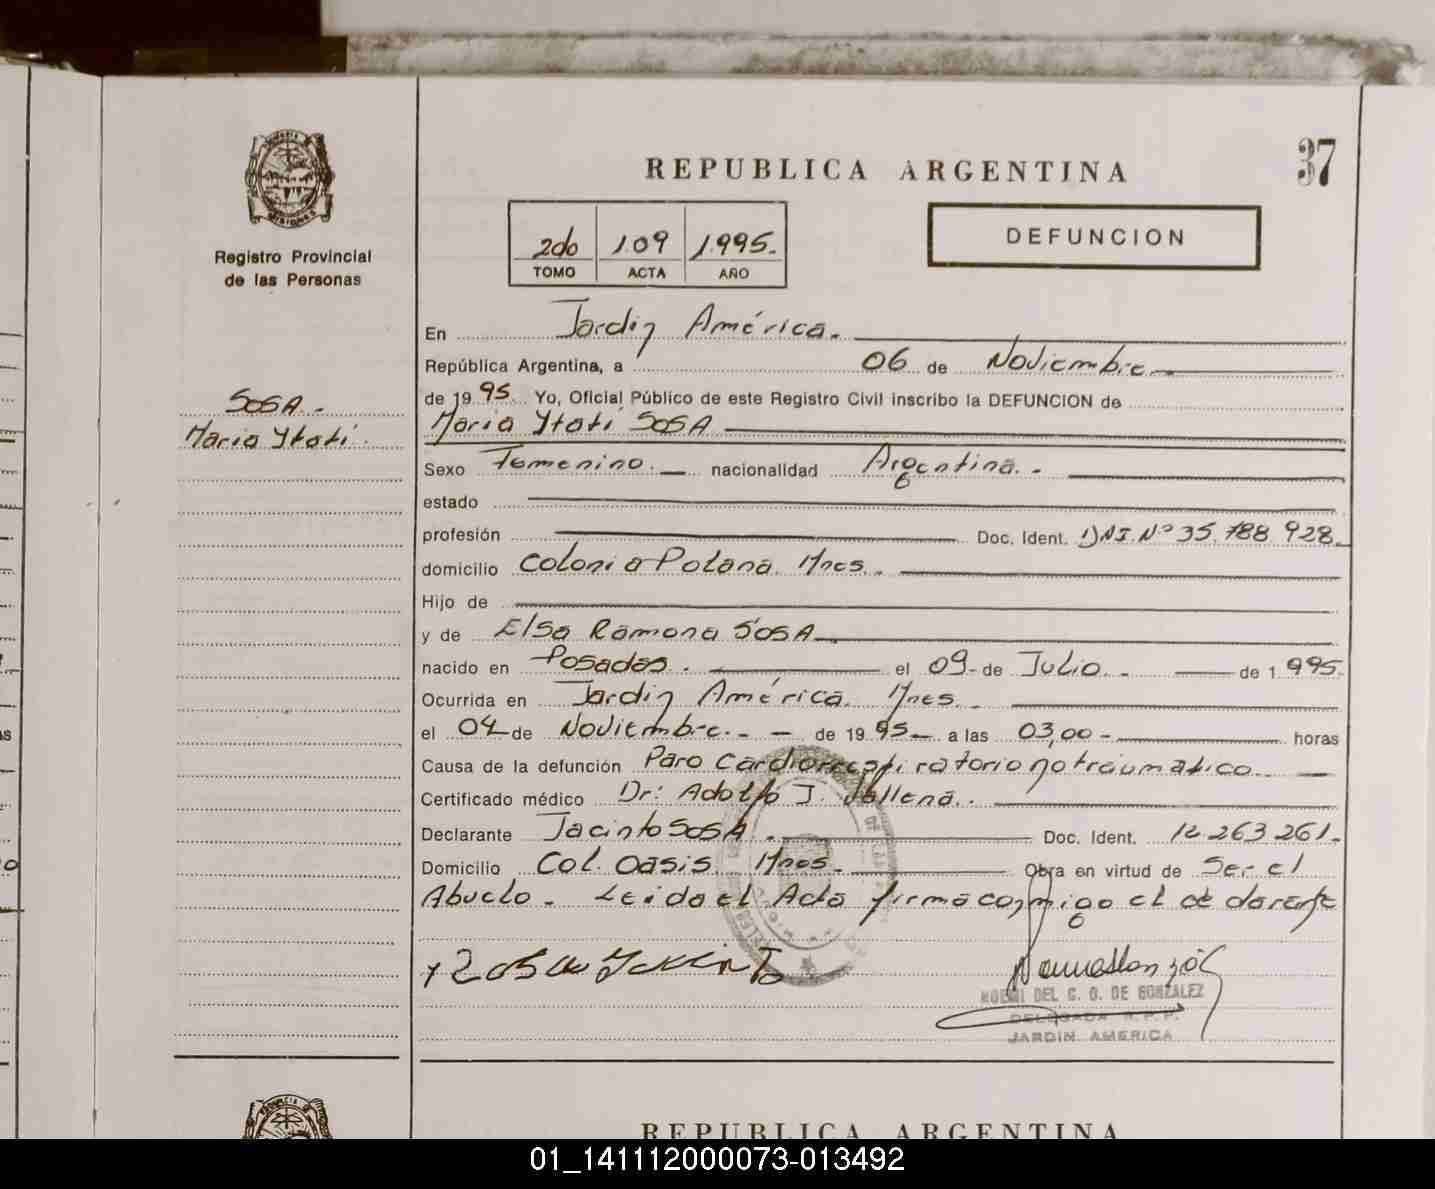 37
REPUBLICA ARGENTINA
MISIONES
Registro Provincial
de las Personas
2do 109 1.995.-
TOMO ACTA AÑO
DEFUNCION
SOSA.-
Maria Ytatí.
En Jardin América.-
República Argentina, a 06 de Noviembre
de 1995 Yo, Oficial Público de este Registro Civil inscribo la DEFUNCION de
Maria Ytatí SOSA
Sexo Femenino.- nacionalidad Argentina.-
estado
profesión Doc. Ident. DNI.Nº 35.788.928.
domicilio Colonia Polana. Mnes.-
Hijo de
y de Elsa Ramona SOSA
nacido en Posadas. el 09 de Julio.- de 1.995.
Ocurrida en Jardin América. Mnes.-
el 04 de Noviembre.- de 1995 a las 03,00 - horas
Causa de la defunción Paro Cardiorrespiratorio no traumatico.
Certificado médico Dr: Adolfo J.
Declarante Jacinto SOSA.- Doc. Ident. 12.263.261.-
Domicilio Col. Oasis. Mnes.- Obra en virtud de Ser el
Abuelo.- Leida el Acta firma conmigo el declarante
NOEMI DEL C. G. DE GONZALEZ
DELEGADA R.P.P.
JARDIN AMERICA
REPUBLICA ARGENTINA
01_141112000073-013492